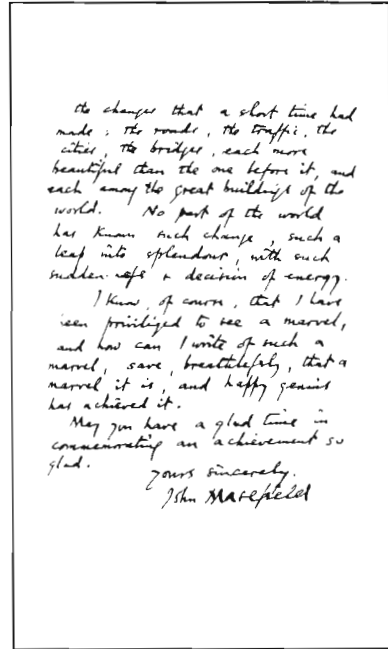 the changes that a short time had
made; the roads, the traffic, the
cities, the bridges, each more
beautiful than the one before it, and
each among the great buildings of the
world. No part of the world
has known such change, such a
leap into splendour, with such
suddenness & decision of energy.
I know, of course, that I have
been priviliged to see a marvel,
and how can I write of such a
marvel, save, breathlessly, that a
marvel it is, and happy genius
has achieved it.
May you have a glad time in
commemorating an achievement so
glad.
Yours sincerely.
John Masefield